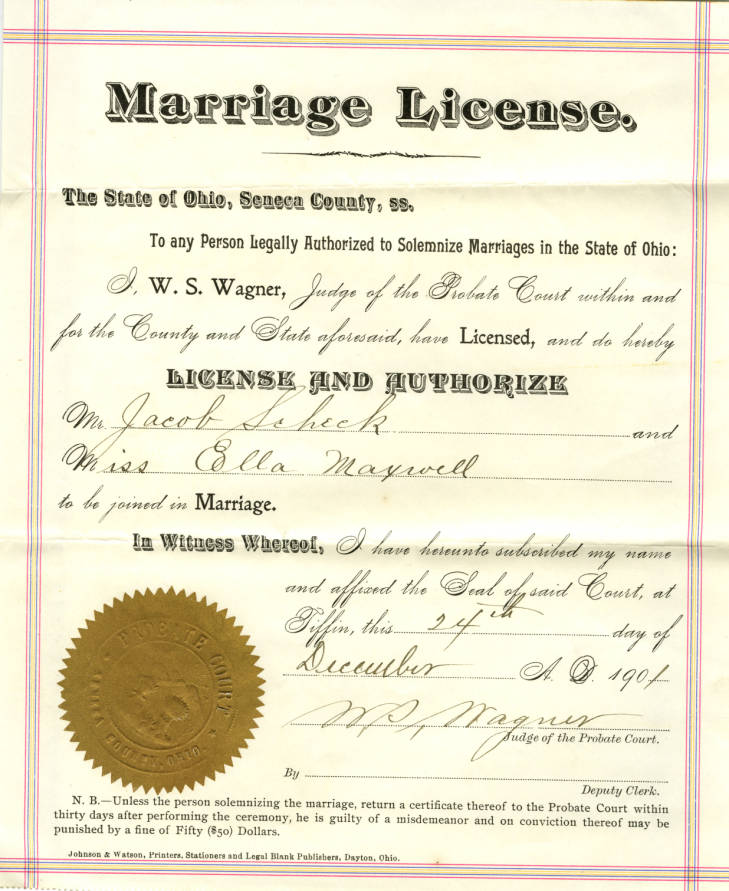 Marriage License.
The State of Ohio, Seneca County, ss.
To any Person Legally Authorized to Solemnize Marriages in the State of Ohio:
I, W. S. Wagner, Judge of the Probate Court within and
for the County and State aforesaid, have Licensed, and do hereby
LICENSE AND AUTHORIZE
Mr. Jacob Scheck and
Miss Ella Maxwell
to be joined in Marriage.
In Witness Whereof, I have hereunto subscribed my name
and affixed the Seal of said Court, at
Tiffin, this 24th day of
December A. D. 1901
W S, Wagner
Judge of the Probate Court.
By
Deputy Clerk.
PROBATE COURT
SENECA COUNTY, OHIO.
N. B.—Unless the person solemnizing the marriage, return a certificate thereof to the Probate Court within
thirty days after performing the ceremony, he is guilty of a misdemeanor and on conviction thereof may be
punished by a fine of Fifty ($50) Dollars.
Johnson & Watson, Printers, Stationers and Legal Blank Publishers, Dayton, Ohio.